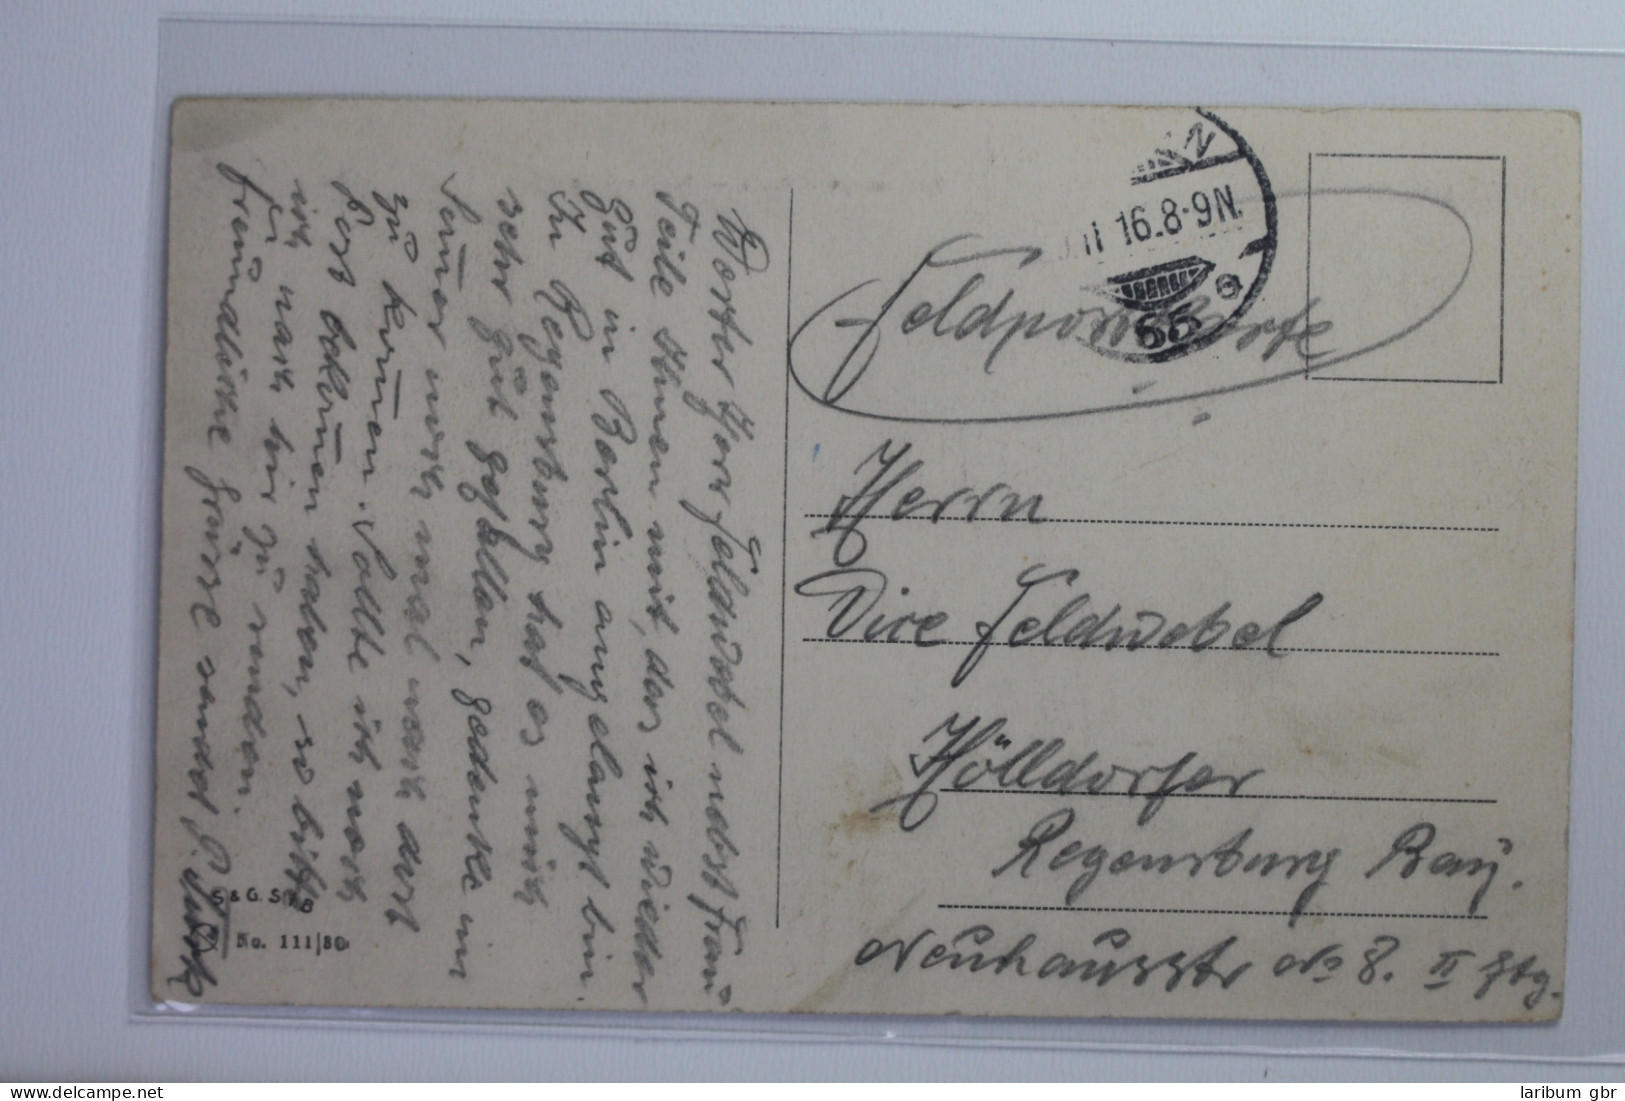 Werter Herr Feldwebel nebst Frau
Teile Ihnen mit, das ich wieder
gut in Berlin angelangt bin
In Regensburg hat es mich
sehr gut gefallen, gedenke im
Sommer noch mal nach dort
zu kommen. Sollte ich noch
Post bekommen haben, so bitte
ich nach hir zu senden.
freundliche Grüsse sendet P.
S & G. S i. B
No. 111/80
16.8-9N.
66
Feldpostkarte
Herrn
Vice Feldwebel
Hölldorfer
Regensburg Bay.
Neuhausstr No 8. II Etg.
delcampe.net
laribum gbr